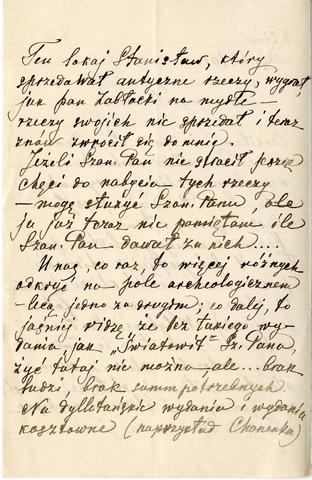 Ten lokaj Stanisław, który
sprzedawał antyczne rzeczy, wygrał
jak pan Zabłocki na mydle —
rzeczy swoich nie sprzedał i teraz
znow zwrócił się do mnie.
Jeżeli Szan. Pan nie stracił jeszcze
chęci do nabycia tych rzeczy
— mogę służyć Szan. Panu, ale
ja już teraz nie pamiętam ile
Szan. Pan dawał za nich....
U nas, co raz, to więcej różnych
odkryć na pole archeologicznem
— lecą jedno za drugem; co dalej, to
jaśniej widzę że bez takiego wy-
dania jak „Światowit" Sz. Pana
żyć tutaj nie można, ale... brak
ludzi, brak summ potrzebnych
Na dylletańskie wydania i wydania
kosztowne (naprzykład Chanenka)